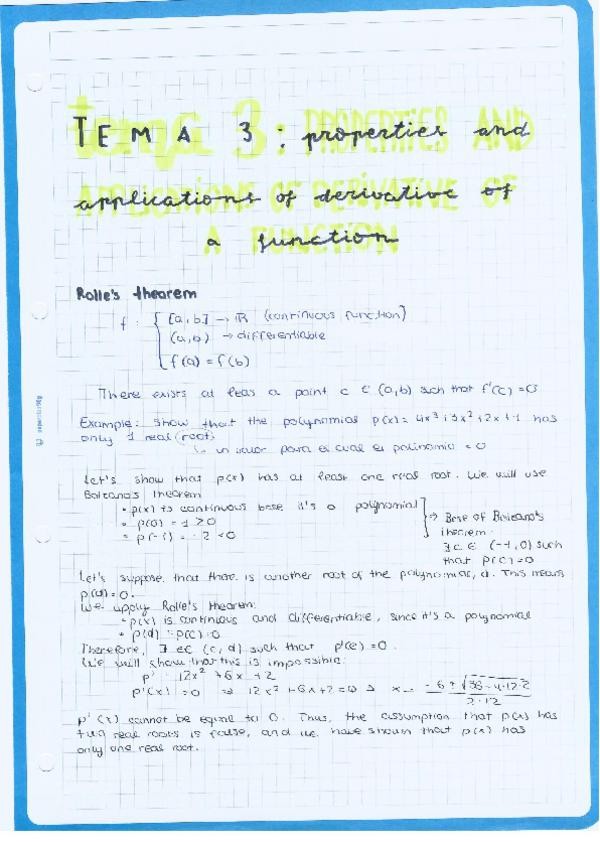 TEMA 3: properties and
applications of derivative of
a function
Rolle's theorem
f: { [a,b] → ℝ (continuous function)
(a,b) → differentiable
f(a) = f(b)
There exists at leas a point c ∈ (a,b) such that f'(c) = 0
Example: show that the polynomial p(x) = 4x³ + 3x² + 2x + 1 has
only 1 real (root)
↳ un valor para el cual el polinomio = 0
Let's show that p(x) has at least one real root. We will use
Bolzano's theorem
• p(x) is continuous bcse it's a polynomial
• p(0) = 1 > 0
• p(-1) = -2 < 0
⇒ Bcse of Bolzano's
theorem
∃ c ∈ (-1,0) such
that p(c) = 0
Let's suppose that there is another root of the polynomial, d. This means
p(d) = 0.
We apply Rolle's theorem:
• p(x) is continuous and differentiable, since it's a polynomial
• p(d) = p(c) = 0
Therefore, ∃ e∈(c,d) such that p'(e) = 0.
We will show that this is impossible:
p' = 12x² + 6x + 2
p'(x) = 0 ⇒ 12x² + 6x + 2 = 0 ⇒ x = -6 ± √36 - 4·12·2
2·12
p'(x) cannot be equal to 0. Thus, the assumption that p(x) has
two real roots is false, and we have shown that p(x) has
only one real root.